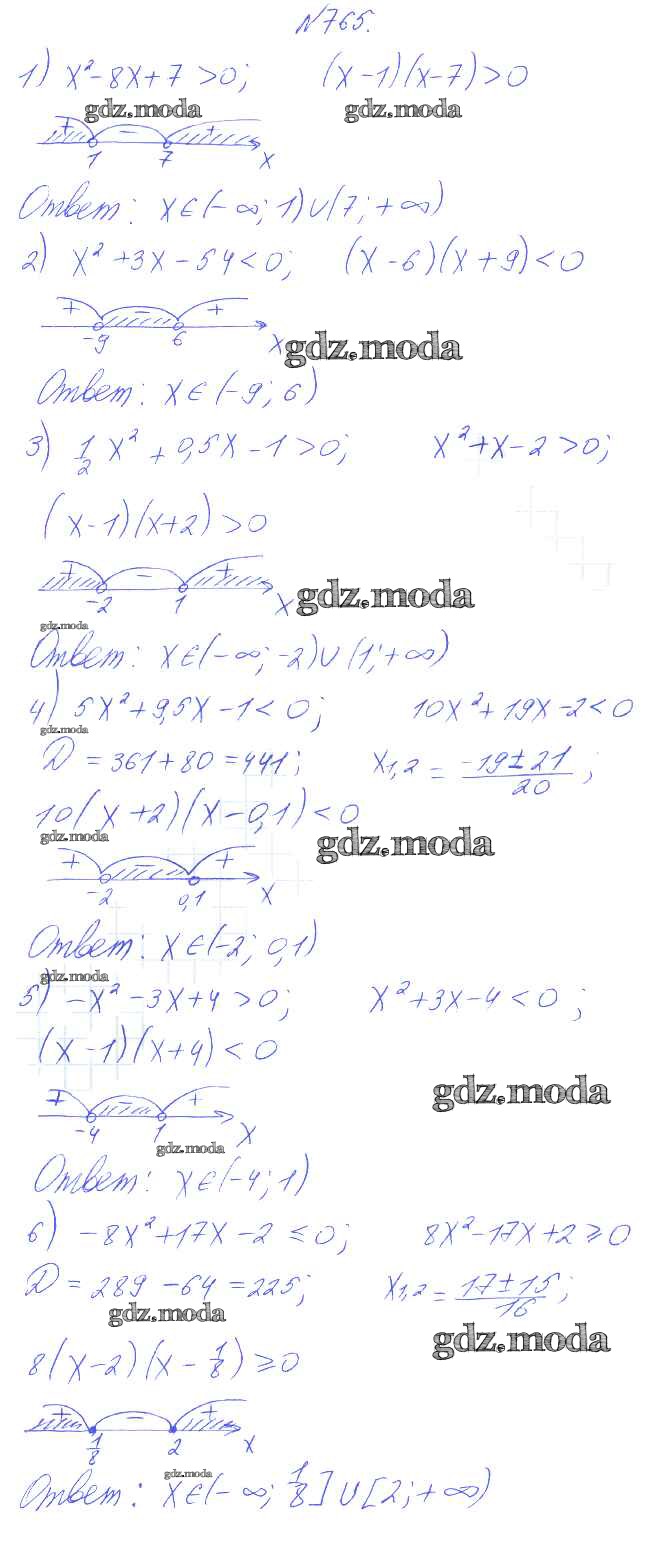 №765.
1) x² - 8x + 7 > 0; (x - 1)(x - 7) > 0
gdz.moda gdz.moda
+ - +
1 7 x
Ответ: x ∈ (-∞; 1) ∪ (7; +∞)
2) x² + 3x - 54 < 0; (x - 6)(x + 9) < 0
+ - +
-9 6 x
gdz.moda
Ответ: x ∈ (-9; 6)
3) 1/2 x² + 0,5x - 1 > 0; x² + x - 2 > 0;
(x - 1)(x + 2) > 0
+ - +
-2 1 x
gdz.moda
gdz.moda
Ответ: x ∈ (-∞; -2) ∪ (1; +∞)
4) 5x² + 9,5x - 1 < 0; 10x² + 19x - 2 < 0
gdz.moda
D = 361 + 80 = 441; x1,2 = (-19 ± 21)/20;
10(x + 2)(x - 0,1) < 0
gdz.moda gdz.moda
+ - +
-2 0,1 x
Ответ: x ∈ (-2; 0,1)
gdz.moda
5) -x² - 3x + 4 > 0; x² + 3x - 4 < 0;
(x - 1)(x + 4) < 0
gdz.moda
+ - +
-4 1 x
gdz.moda
Ответ: x ∈ (-4; 1)
6) -8x² + 17x - 2 ≤ 0; 8x² - 17x + 2 ≥ 0
D = 289 - 64 = 225; x1,2 = (17 ± 15)/16;
gdz.moda gdz.moda
8(x - 2)(x - 1/8) ≥ 0
+ - +
1/8 2 x
gdz.moda
Ответ: x ∈ (-∞; 1/8] ∪ [2; +∞)